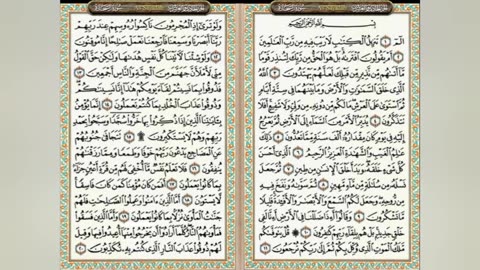 بِسْمِ اللَّهِ الرَّحْمَٰنِ الرَّحِيمِ
الٓمٓ ١ تَنزِيلُ الْكِتَٰبِ لَا رَيْبَ فِيهِ مِن رَّبِّ الْعَٰلَمِينَ
٢ أَمْ يَقُولُونَ افْتَرَىٰهُ بَلْ هُوَ الْحَقُّ مِن رَّبِّكَ لِتُنذِرَ قَوْمًا
مَّآ أَتَىٰهُم مِّن نَّذِيرٍ مِّن قَبْلِكَ لَعَلَّهُمْ يَهْتَدُونَ ٣ اللَّهُ
الَّذِي خَلَقَ السَّمَٰوَٰتِ وَالْأَرْضَ وَمَا بَيْنَهُمَا فِي سِتَّةِ أَيَّامٍ
ثُمَّ اسْتَوَىٰ عَلَى الْعَرْشِ مَا لَكُم مِّن دُونِهِ مِن وَلِيٍّ وَلَا شَفِيعٍ أَفَلَا
تَتَذَكَّرُونَ ٤ يُدَبِّرُ الْأَمْرَ مِنَ السَّمَآءِ إِلَى الْأَرْضِ ثُمَّ يَعْرُجُ
إِلَيْهِ فِي يَوْمٍ كَانَ مِقْدَارُهُ أَلْفَ سَنَةٍ مِّمَّا تَعُدُّونَ ٥ ذَٰلِكَ
عَٰلِمُ الْغَيْبِ وَالشَّهَٰدَةِ الْعَزِيزُ الرَّحِيمُ ٦ الَّذِي أَحْسَنَ
كُلَّ شَيْءٍ خَلَقَهُ وَبَدَأَ خَلْقَ الْإِنسَٰنِ مِن طِينٍ ٧ ثُمَّ جَعَلَ
نَسْلَهُ مِن سُلَٰلَةٍ مِّن مَّآءٍ مَّهِينٍ ٨ ثُمَّ سَوَّىٰهُ وَنَفَخَ فِيهِ
مِن رُّوحِهِ وَجَعَلَ لَكُمُ السَّمْعَ وَالْأَبْصَٰرَ وَالْأَفْـِٔدَةَ قَلِيلًا
مَّا تَشْكُرُونَ ٩ وَقَالُوٓا أَءِذَا ضَلَلْنَا فِي الْأَرْضِ أَءِنَّا لَفِي
خَلْقٍ جَدِيدٍ بَلْ هُم بِلِقَآءِ رَبِّهِمْ كَٰفِرُونَ ١٠ قُلْ يَتَوَفَّىٰكُم
مَّلَكُ الْمَوْتِ الَّذِي وُكِّلَ بِكُمْ ثُمَّ إِلَىٰ رَبِّكُمْ تُرْجَعُونَ ١١
وَلَوْ تَرَىٰٓ إِذِ الْمُجْرِمُونَ نَاكِسُوا رُءُوسِهِمْ عِندَ رَبِّهِمْ
رَبَّنَآ أَبْصَرْنَا وَسَمِعْنَا فَارْجِعْنَا نَعْمَلْ صَٰلِحًا إِنَّا مُوقِنُونَ
١٢ وَلَوْ شِئْنَا لَءَاتَيْنَا كُلَّ نَفْسٍ هُدَىٰهَا وَلَٰكِنْ حَقَّ الْقَوْلُ
مِنِّي لَأَمْلَأَنَّ جَهَنَّمَ مِنَ الْجِنَّةِ وَالنَّاسِ أَجْمَعِينَ ١٣
فَذُوقُوا بِمَا نَسِيتُمْ لِقَآءَ يَوْمِكُمْ هَٰذَآ إِنَّا نَسِينَٰكُمْ
وَذُوقُوا عَذَابَ الْخُلْدِ بِمَا كُنتُمْ تَعْمَلُونَ ١٤ إِنَّمَا يُؤْمِنُ
بِـَٔايَٰتِنَا الَّذِينَ إِذَا ذُكِّرُوا بِهَا خَرُّوا سُجَّدًا وَسَبَّحُوا بِحَمْدِ
رَبِّهِمْ وَهُمْ لَا يَسْتَكْبِرُونَ ۩ ١٥ تَتَجَافَىٰ جُنُوبُهُمْ
عَنِ الْمَضَاجِعِ يَدْعُونَ رَبَّهُمْ خَوْفًا وَطَمَعًا وَمِمَّا رَزَقْنَٰهُمْ
يُنفِقُونَ ١٦ فَلَا تَعْلَمُ نَفْسٌ مَّآ أُخْفِيَ لَهُم مِّن قُرَّةِ أَعْيُنٍ جَزَآءً
بِمَا كَانُوا يَعْمَلُونَ ١٧ أَفَمَن كَانَ مُؤْمِنًا كَمَن كَانَ فَاسِقًا
لَّا يَسْتَوُونَ ١٨ أَمَّا الَّذِينَ ءَامَنُوا وَعَمِلُوا الصَّٰلِحَٰتِ فَلَهُمْ
جَنَّٰتُ الْمَأْوَىٰ نُزُلًا بِمَا كَانُوا يَعْمَلُونَ ١٩ وَأَمَّا الَّذِينَ فَسَقُوا
فَمَأْوَىٰهُمُ النَّارُ كُلَّمَآ أَرَادُوٓا أَن يَخْرُجُوا مِنْهَآ أُعِيدُوا فِيهَا وَقِيلَ
لَهُمْ ذُوقُوا عَذَابَ النَّارِ الَّذِي كُنتُم بِهِ تُكَذِّبُونَ ٢٠